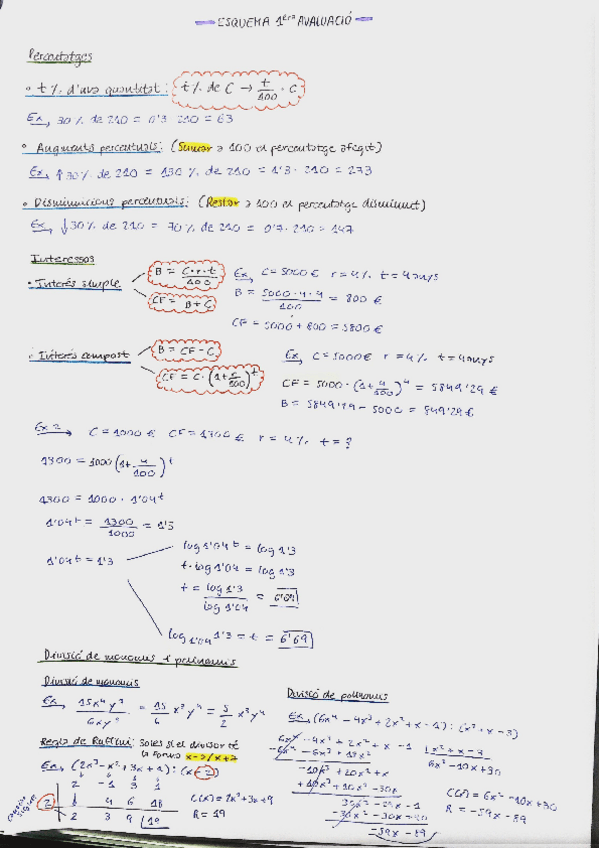 ESQUEMA 1era AVALUACIÓ
Percentatges
• t % d'una quantitat: t % de C → t/100 · C
Ex, 30 % de 210 = 0'3 · 210 = 63
• Augments percentuals: (Sumar a 100 el percentatge afegit)
Ex, ↑30 % de 210 = 130 % de 210 = 1'3 · 210 = 273
• Disminucions percentuals: (Restar a 100 el percentatge disminuït)
Ex, ↓30 % de 210 = 70 % de 210 = 0'7 · 210 = 147
Interessos
• Interés simple
B = C·r·t/100
CF = B + C
Ex, C = 5000 € r = 4 % t = 4 anys
B = 5000·4·4/100 = 800 €
CF = 5000 + 800 = 5800 €
• Interés compost
B = CF - C
CF = C · (1 + r/100)^t
Ex, C = 5000 € r = 4 % t = 4 anys
CF = 5000 · (1 + 4/100)^4 = 5849'29 €
B = 5849'29 - 5000 = 849'29 €
Ex 2 C = 1000 € CF = 1300 € r = 4 % t = ?
1300 = 1000 (1 + 4/100)^t
1300 = 1000 · 1'04^t
1'04^t = 1300/1000 = 1'3
1'04^t = 1'3
log 1'04^t = log 1'3
t · log 1'04 = log 1'3
t = log 1'3 / log 1'04 = 6'69
log 1'04 1'3 = t = 6'69
Divisió de monomis i polinomis
Divisió de monomis
Divisió de polinomis
Regla de Ruffini: Soles si el divisor té
la forma x-a / x+a
Ex, (2x³ - x² + 3x + 1) : (x - 2)
2 -1 3 1
2 4 6 18
2 3 9 19
C(x) = 2x² + 3x + 9
R = 19
R = -59x - 89
-59x - 89